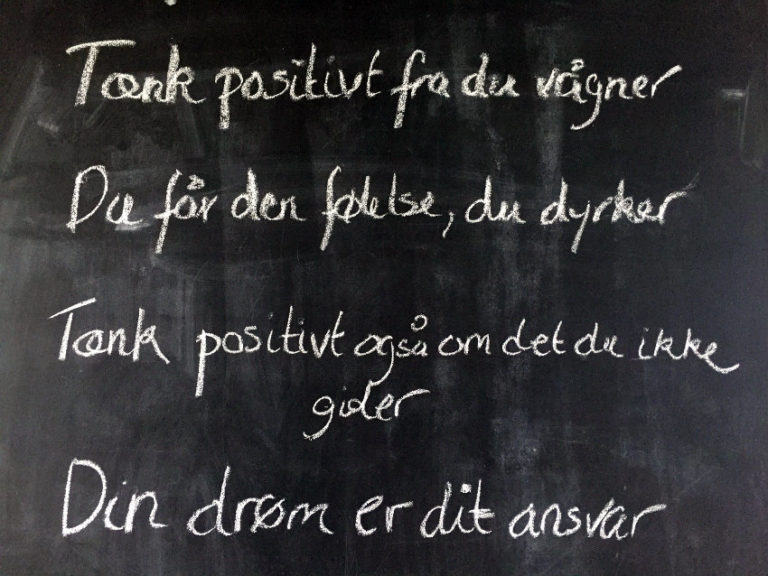 Tænk positivt fra du vågner
Du får den følelse, du dyrker
Tænk positivt også om det du ikke
gider
Din drøm er dit ansvar